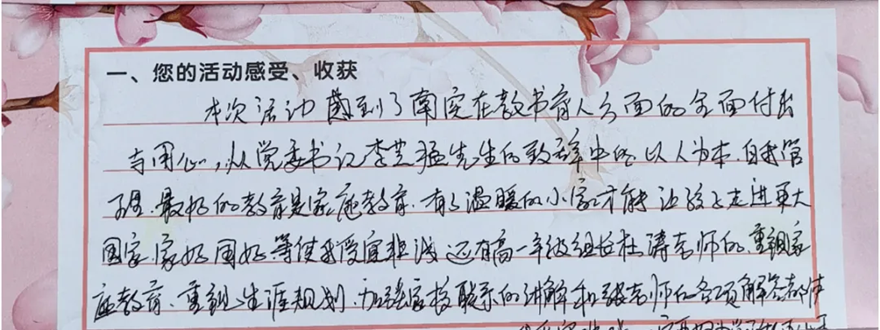 一、您的活动感受、收获
本次活动 看到了南实在教书育人方面的全面付出
与用心,从党委书记李 先生的致辞中的以人为本.自我管
理.最好的教育是家庭教育.有了温暖的小家才能让孩子走进更大
国家.家好国好等使我受宜非浅 还有高一年级组长杜涛老师的.重视家
庭教育.重视生涯规划.加强家校联系的讲解和 老师的各项解答